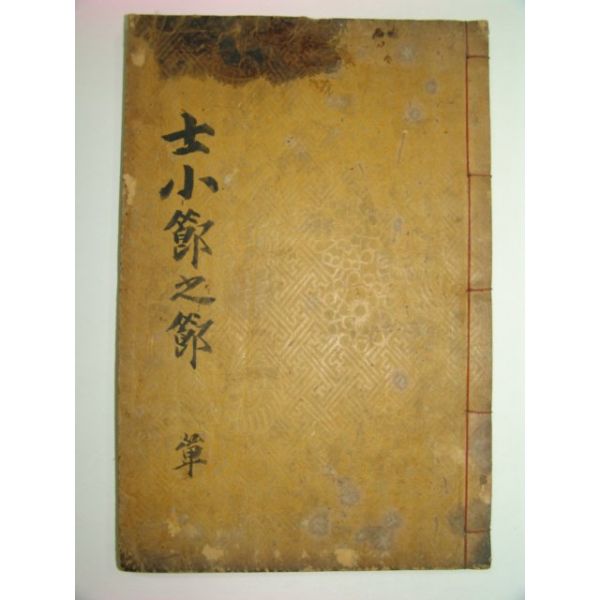 士小節之節
單